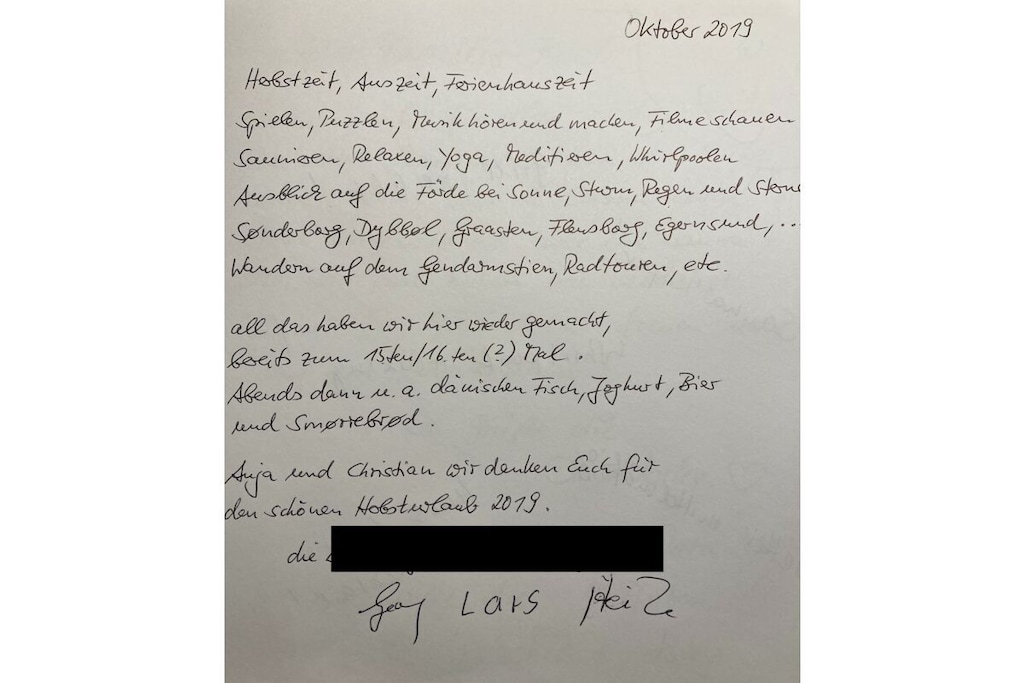 Oktober 2019
Herbstzeit, Auszeit, Ferienhauszeit
Spielen, Puzzlen, Musik hören und machen, Filme schauen
Saunieren, Relaxen, Yoga, Meditieren, Whirlpoolen
Ausblick auf die Förde bei Sonne, Sturm, Regen und
Sønderborg, Dybbøl, Graasten, Flensborg, Egernsund, ...
Wandern auf dem Gendarmstien, Radtouren, etc.
all das haben wir hier wieder gemacht,
bereits zum 15ten/16.ten (?) Mal.
Abends dann u. a. dänischen Fisch, Joghurt, Bier
und Smørrebrød.
Anja und Christian wir danken Euch für
den schönen Herbsturlaub 2019.
die
Lars